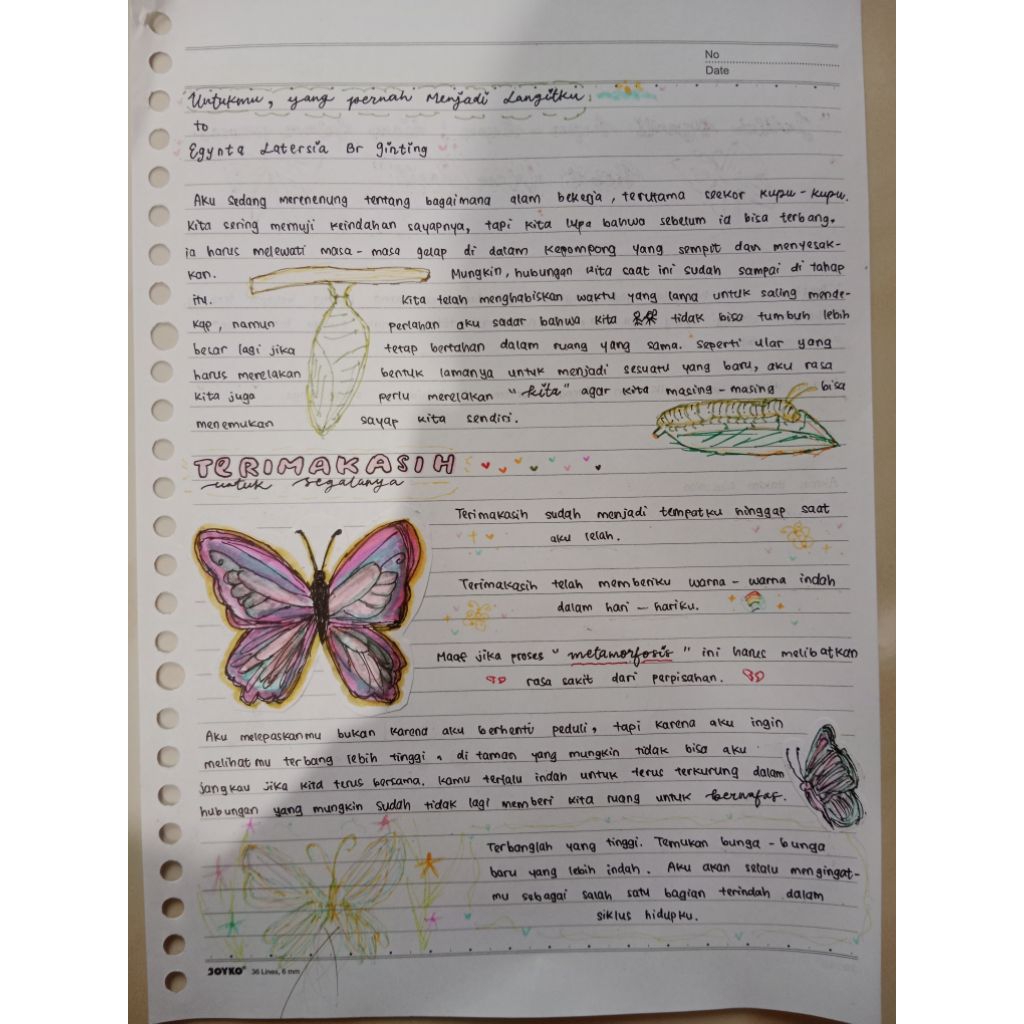 No
Date
Untukmu, yang pernah Menjadi Langitku.
to
Egynta Latersia Br Ginting
Aku sedang merenenung tentang bagaimana alam bekerja, terutama seekor kupu-kupu.
Kita sering memuji keindahan sayapnya, tapi kita lupa bahwa sebelum ia bisa terbang.
ia harus melewati masa-masa gelap di dalam kepompong yang sempit dan menyesak-
kan. Mungkin, hubungan kita saat ini sudah sampai di tahap
itu. Kita telah menghabiskan waktu yang lama untuk saling mende-
kap, namun perlahan aku sadar bahwa kita tidak bisa tumbuh lebih
besar lagi jika tetap bertahan dalam ruang yang sama. seperti ular yang
harus merelakan bentuk lamanya untuk menjadi sesuatu yang baru, aku rasa
kita juga perlu merelakan "kita" agar kita masing-masing bisa
menemukan sayap kita sendiri.
TERIMAKASIH
untuk segalanya
Terimakasih sudah menjadi tempatku hinggap saat
aku lelah.
Terimakasih telah memberiku warna-warna indah
dalam hari-hariku.
Maaf jika proses "metamorfosis" ini harus melibatkan
rasa sakit dari perpisahan.
Aku melepaskanmu bukan karena aku berhenti peduli, tapi karena aku ingin
melihatmu terbang lebih tinggi, di taman yang mungkin tidak bisa aku
jangkau jika kita terus bersama. Kamu terlalu indah untuk terus terkurung dalam
hubungan yang mungkin sudah tidak lagi memberi kita ruang untuk bernafas.
Terbanglah yang tinggi. Temukan bunga-bunga
baru yang lebih indah. Aku akan selalu mengingat-
mu sebagai salah satu bagian terindah dalam
siklus hidupku.
JOYKO 36 Lines, 6 mm